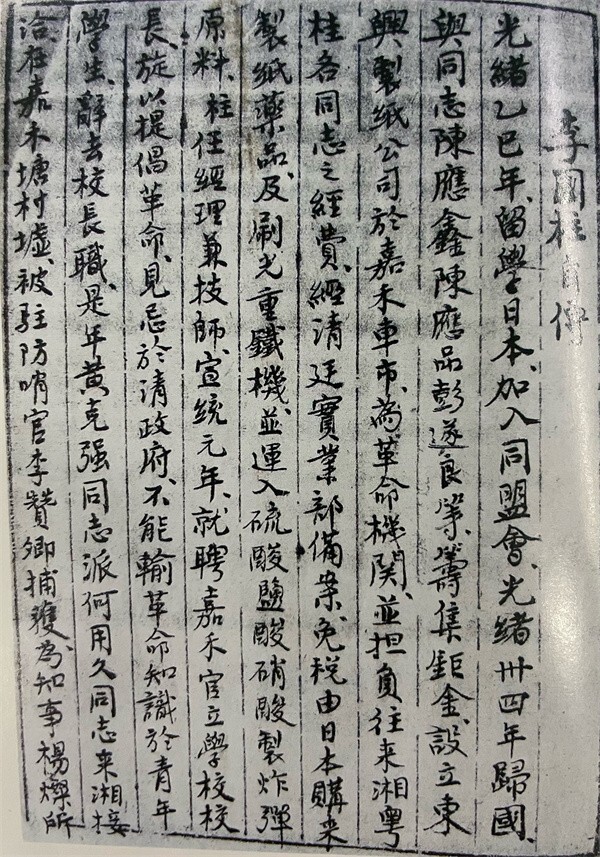 李國柱自傳
光緒乙巳年、留學日本、加入同盟會、光緒卅四年歸國、
與同志陳應鑫陳應品彭遂良等、籌集鉅金、設立東
興製紙公司於嘉禾車市、為革命機関、並担負往来湘粤
桂各同志之經費、經清廷實業部備案、免税由日本購来
製紙藥品、及刷光重鐵機、並運入硫酸鹽酸硝酸製炸彈
原料、柱任經理兼技師、宣統元年、就聘嘉禾官立學校校
長、旋以提倡革命、見忌於清政府、不能輸革命知識於青年
學生、辭去校長職、是年黄克强同志派何用久同志来湘接
洽、在嘉禾塘村墟、被駐防哨官李贊卿捕獲、為知事楊燦所